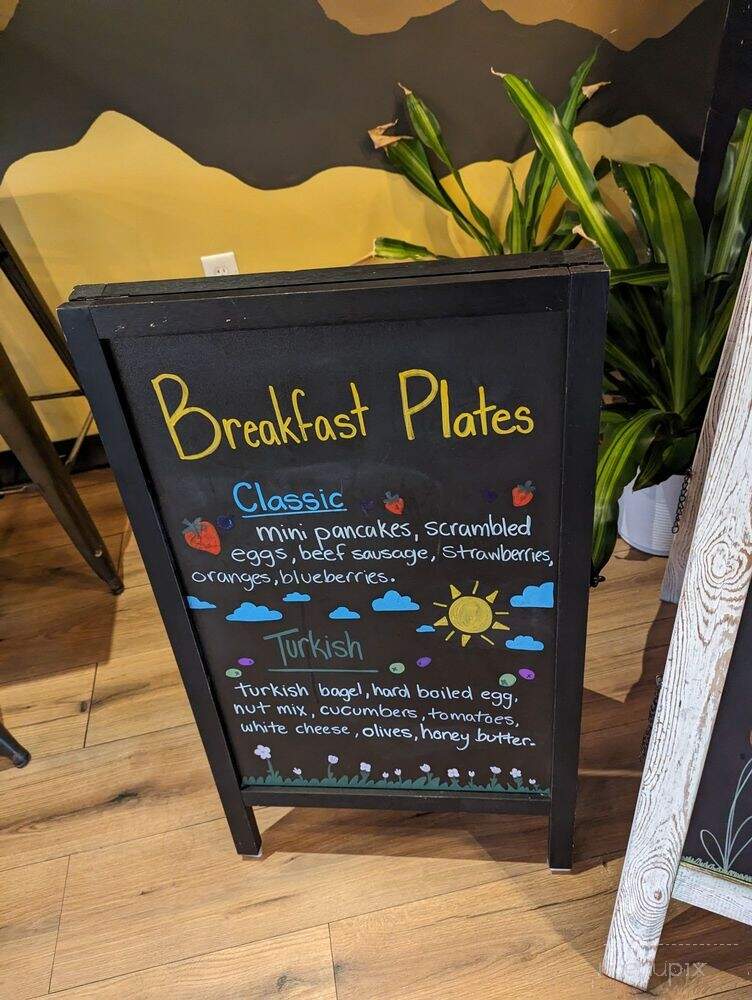 Breakfast Plates
Classic
mini pancakes, scrambled
eggs, beef sausage, strawberries,
oranges, blueberries.
Turkish
turkish bagel, hard boiled egg,
nut mix, cucumbers, tomatoes,
white cheese, olives, honey butter.
menupix